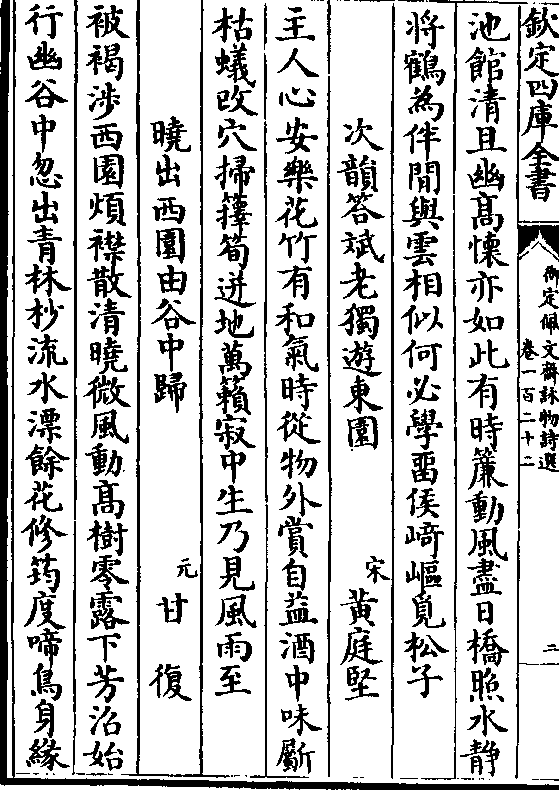 欽定四庫全書
御定佩文齋詠物詩選
卷一百二十二
二
池館清且幽髙懷亦如此有時簾動風盡日橋照水靜
將鶴為伴閒與雲相似何必學畱侯崎嶇覓松子
次韻答斌老獨遊東園
宋黄庭堅
主人心安樂花竹有和氣時從物外賞自益酒中味斸
枯蟻改穴掃籜筍迸地萬籟寂中生乃見風雨至
曉出西園由谷中歸
元甘復
被褐渉西園煩襟散清曉微風動髙樹零露下芳沼始
行幽谷中忽出青林杪流水漂餘花修筠度啼鳥身緣